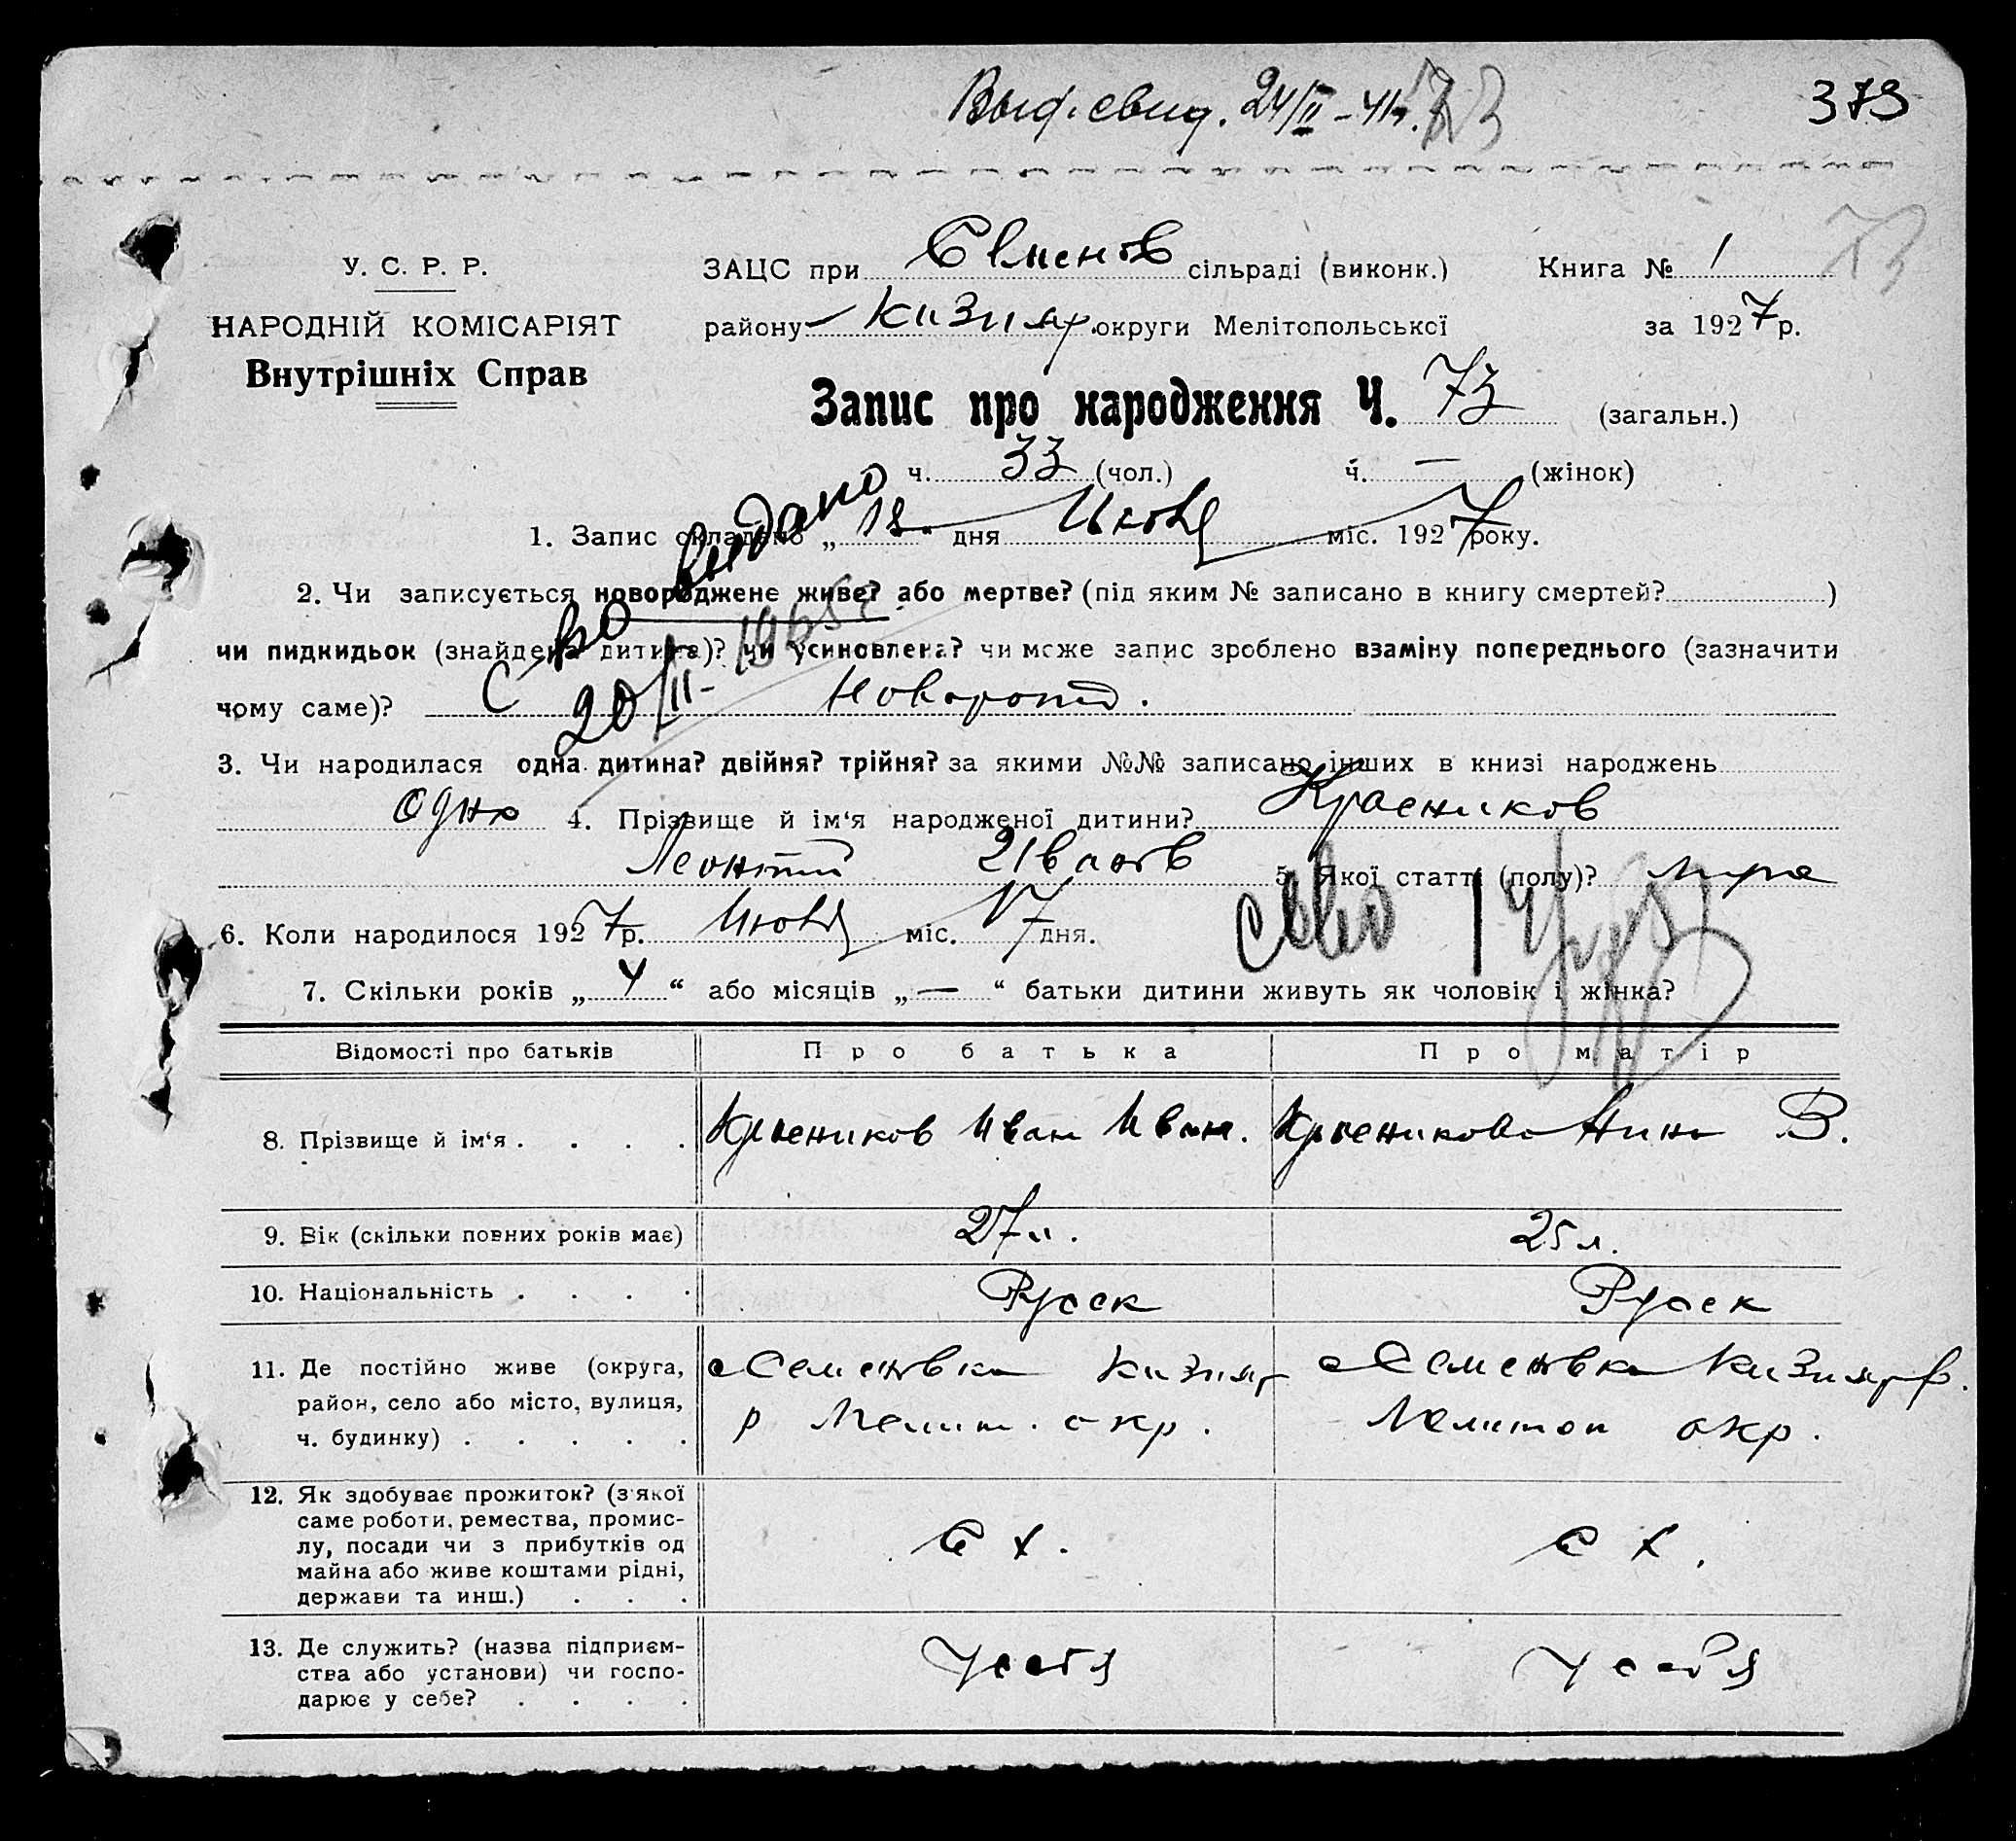 Выд. свид. 24/II-41г. 73
373
У. С. Р. Р.
НАРОДНІЙ КОМІСАРІЯТ
Внутрішніх Справ
ЗАЦС при Семенов сільраді (виконк.) Книга № 1 73
району Кизияр. округи Мелітопольської за 1927 р.
Запис про народження Ч. 73 (загальн.)
ч. 33 (чол.) ч. — (жінок)
1. Запис складено „18“ дня Июля міс. 1927 року.
2. Чи записується новороджене живе? або мертве? (під яким № записано в книгу смертей? )
чи пидкидьок (знайдена дитина)? чи усиновлена? чи може запис зроблено взаміну попереднього (зазначити
чому саме)? Еноворожд.
С-во выдано
20/II-1965г.
3. Чи народилася одна дитина? двійня? трійня? за якими №№ записано інших в книзі народжень
одна 4. Прізвище й ім‘я народженої дитини? Красников
Леонтий Иванов 5. Якої статті (полу)? муж
6. Коли народилося 1927 р. Июля міс. 17 дня.
7. Скільки років „4“ або місяців „—“ батьки дитини живуть як чоловік і жінка?
Відомості про батьків Про батька Про матір
8. Прізвище й ім‘я . . . . Красников Иван Иван. Красникова Нина В.
9. Вік (скільки повних років має) 27 л. 25 л.
10. Національність . . . . Русск Русск
11. Де постійно живе (округа, район, село або місто, вулиця, ч. будинку) . . . . .
с Семеновка Кизияр
р Мелит. окр.
с Семеновка Кизияр р.
Мелитоп окр.
12. Як здобуває прожиток? (з якої
саме роботи, ремества, промис-
лу, посади чи з прибутків од
майна або живе коштами рідні,
держави та инш.) . . .
С Х. С Х.
13. Де служить? (назва підприєм-
ства або установи) чи госпо-
дарює у себе? . . . .
У себя У себя